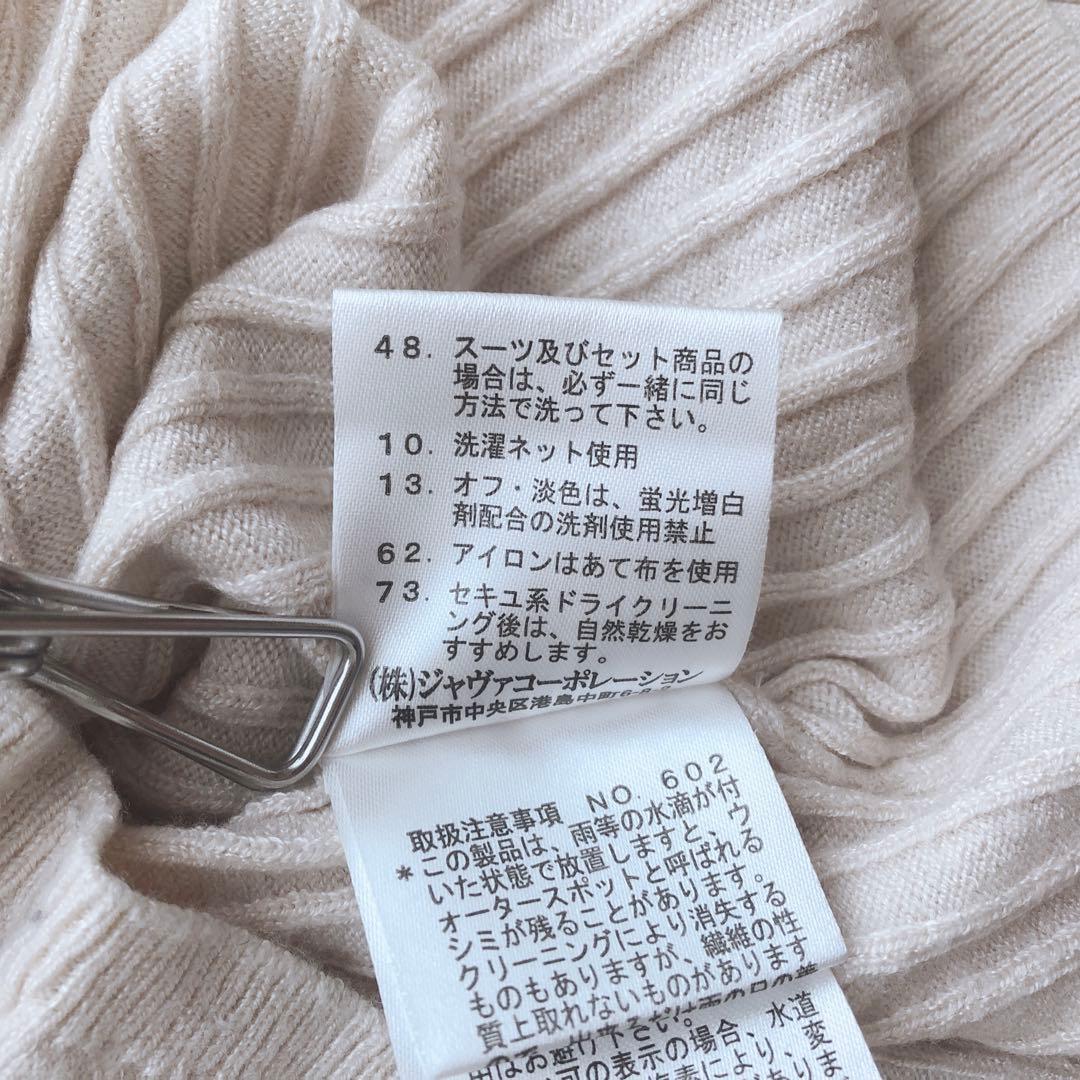 48. スーツ及びセット商品の
場合は、必ず一緒に同じ
方法で洗って下さい。
10. 洗濯ネット使用
13. オフ・淡色は、蛍光増白
剤配合の洗剤使用禁止
62. アイロンはあて布を使用
73. セキユ系ドライクリーニ
ング後は、自然乾燥をお
すすめします。
(株)ジャヴァコーポレーション
神戸市中央区港島中町
取扱注意事項 NO. 602
*この製品は、雨等の水滴が付
いた状態で放置しますと、ウ
オータースポットと呼ばれる
シミが残ることがあります。
クリーニングにより消失する
ものもありますが、繊維の性
質上取れないものがあります
はお避け下さい。
の表示の場合、水道
により、変